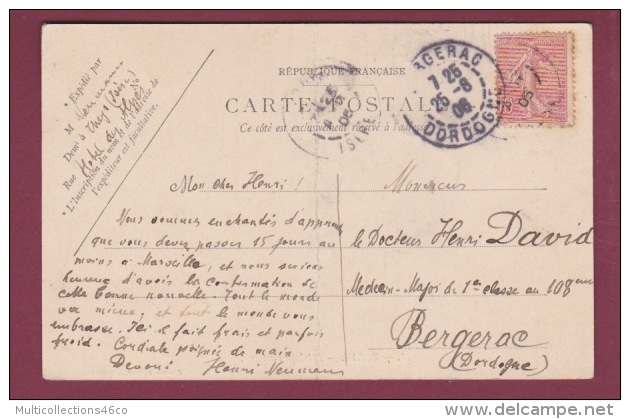 RÉPUBLIQUE FRANÇAISE
CARTE POSTALE
Ce côté est exclusivement réservé à l'adresse
* Expédié par
M Neumann
Demt à (Isère)
Rue Hotel des Alpes
* L'Inscription du nom et de l'adresse de
l'expéditeur est facultative.
BERGERAC
7 25
25-8
DORDOGNE
ISÈRE
Mon cher Henri !
Nous sommes enchantés d'apprendre
que vous devez passer 15 jours au
moins à Marseille, et nous serions
heureux d'avoir la confirmation de
cette bonne nouvelle. Tout le monde
va mieux, et tout le monde vous
embrasse. Ici il fait frais et parfois
froid. Cordiale poignée de main
Devoué Henri Neumann
Monsieur
le Docteur Henri David
Médecin-Major de 1re classe au 108me
Bergerac
(Dordogne)
Multicollections46co
delcampe.net